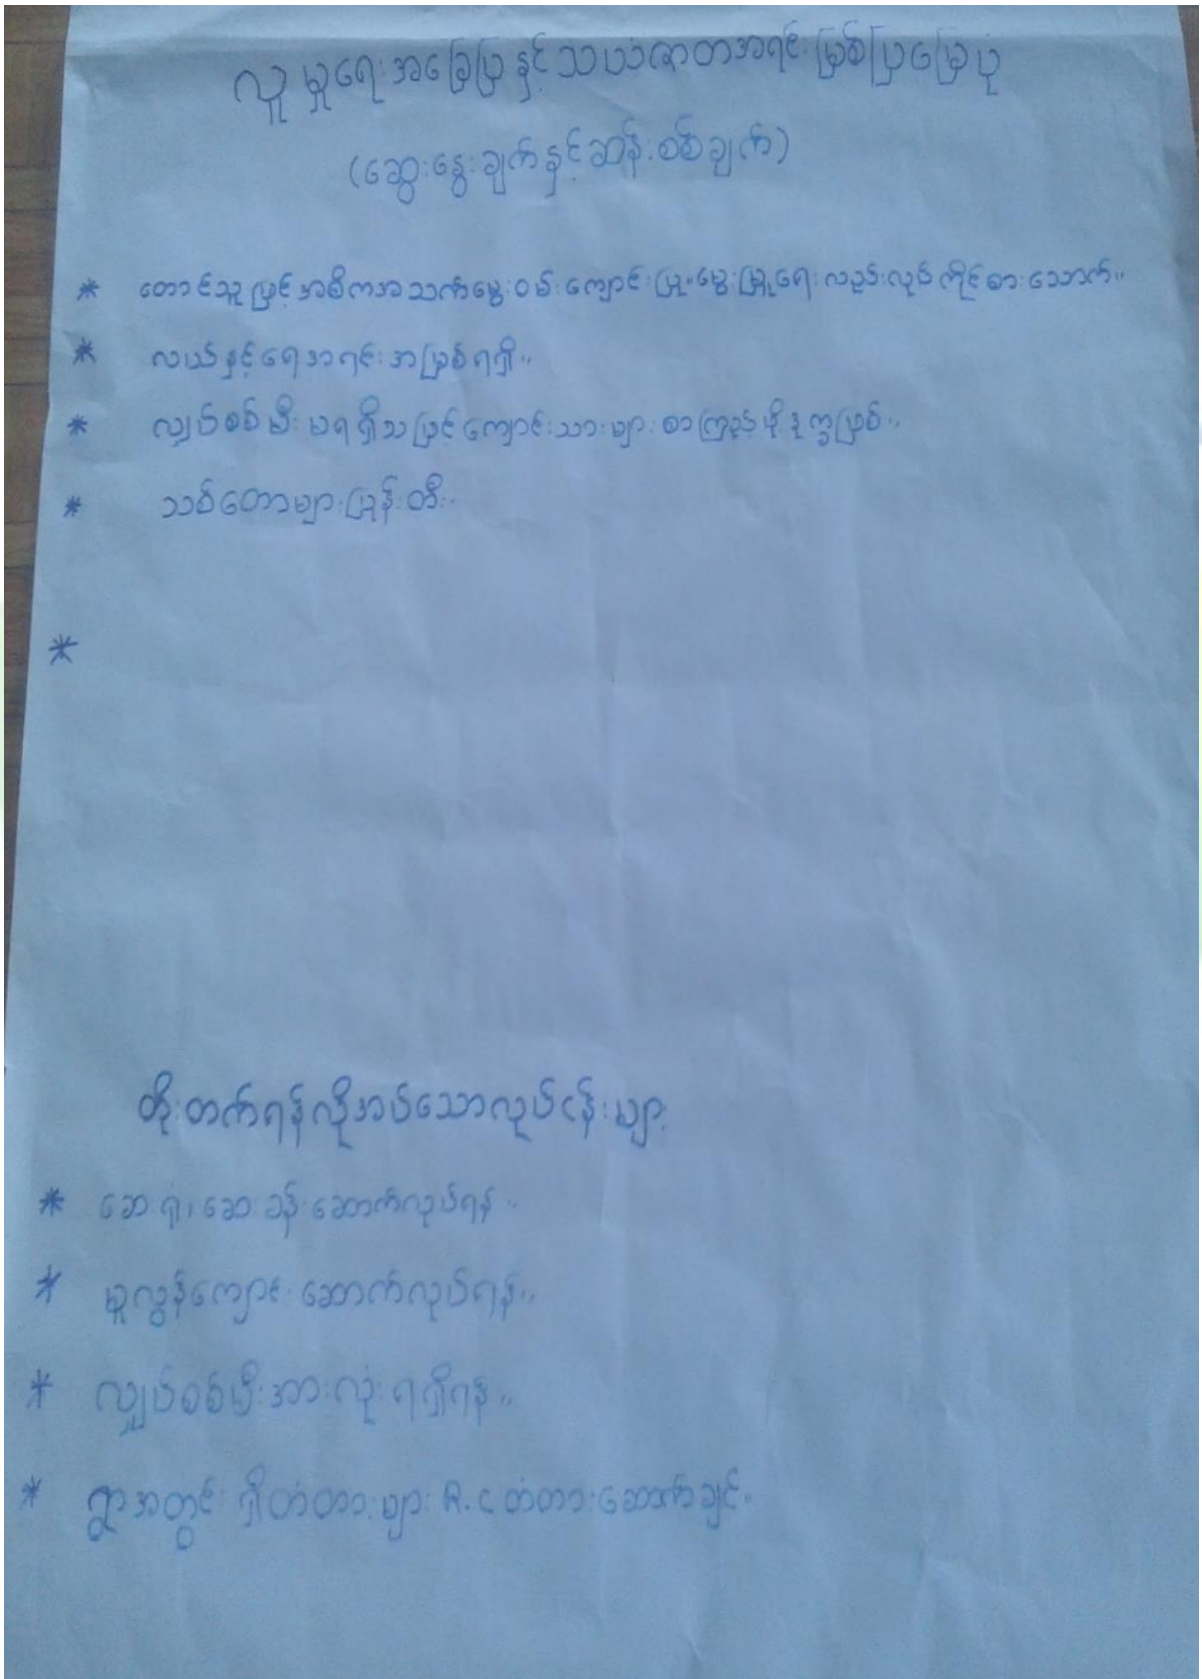 လူမှုရေးအခြေပြနှင့်သယံဇာတအရင်းမြစ်ပြမြေပုံ
(ဆွေးနွေးချက်နှင့်ဆန်းစစ်ချက်)
* တောင်သူဖြင့်အဓိကအသက်မွေးဝမ်းကျောင်းပြု။မွေးမြူရေးလည်းလုပ်ကိုင်စားသောက်။
* လယ်နှင့်ရေအရင်းအမြစ်ရရှိ။
* လျှပ်စစ်မီးမရရှိသဖြင့်ကျောင်းသားများစာကြည့်ဖို့ဒုက္ခဖြစ်။
* သစ်တောများပြုန်းတီး။
*
တိုးတက်ရန်လိုအပ်သောလုပ်ငန်းများ
* ဆေးရုံ၊ဆေးခန်းဆောက်လုပ်ရန်။
* မူလွန်ကျောင်းဆောက်လုပ်ရန်။
* လျှပ်စစ်မီးအားလုံးရရှိရန်။
* ရွာအတွင်းရှိတံတားများ R.C တံတားဆောက်ချင်။